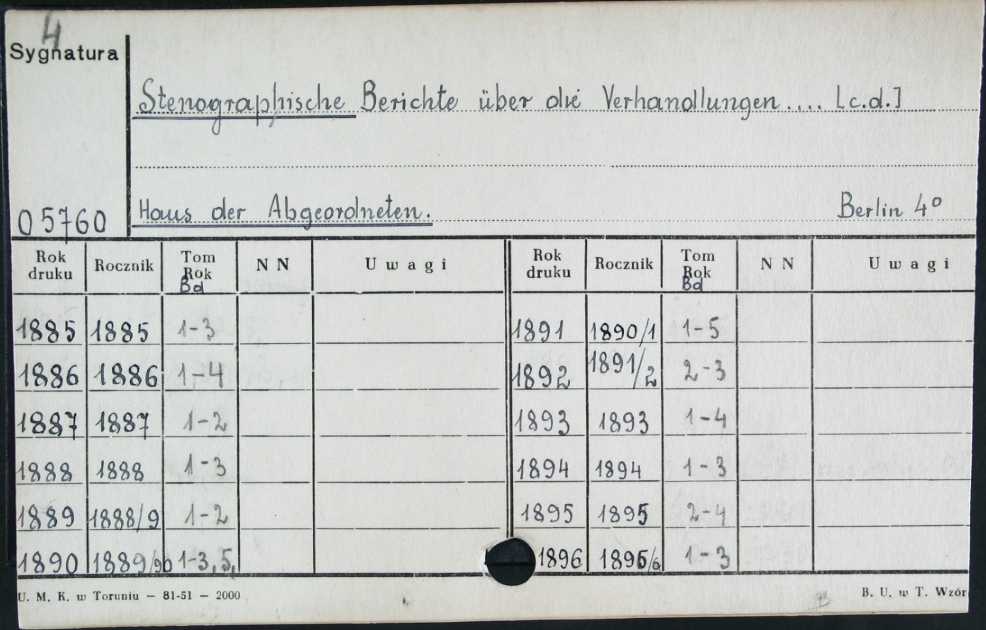 4
Sygnatura
Stenographische Berichte über die Verhandlungen.... [c.d.]
Haus der Abgeordneten. Berlin 4°
05760
Rok druku Rocznik Tom Rok Bd NN Uwagi Rok druku Rocznik Tom Rok Bd NN Uwagi
1885 1885 1-3 1891 1890/1 1-5
1886 1886 1-4 1892 1891/2 2-3
1887 1887 1-2 1893 1893 1-4
1888 1888 1-3 1894 1894 1-3
1889 1888/9 1-2 1895 1895 2-4
1890 1889/90 1-3,5, 1896 1895/6 1-3
U. M. K. w Toruniu — 81-51 — 2000 B. U. w T. Wzór